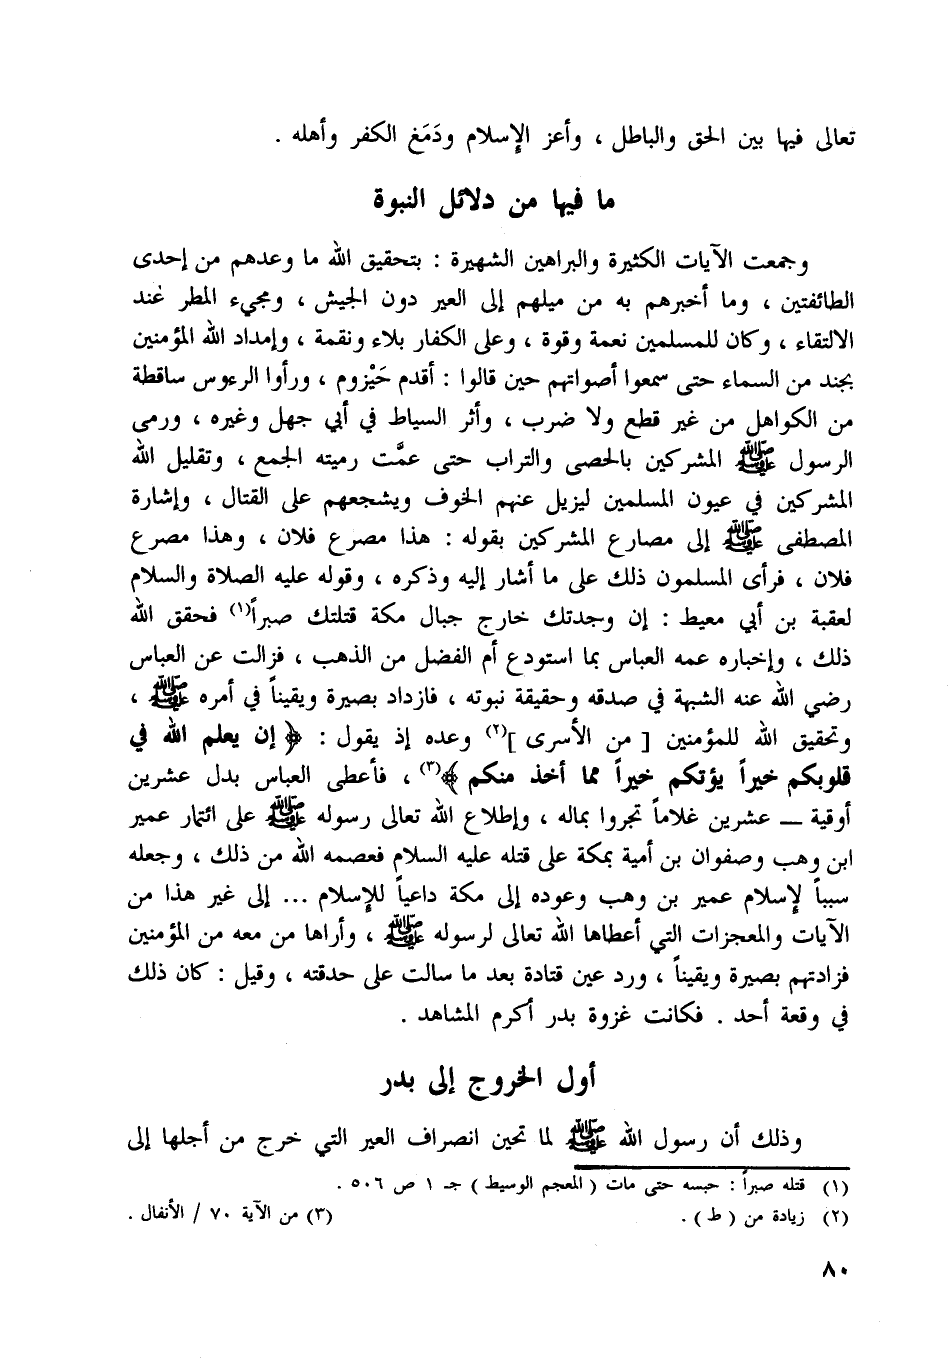 تعالى فيها بين الحق والباطل ، وأعز الإسلام ودَمَغ الكفر وأهله .
ما فيها من دلائل النبوة
وجمعت الآيات الكثيرة والبراهين الشهيرة : بتحقيق الله ما وعدهم من إحدى
الطائفتين ، وما أخبرهم به من ميلهم إلى العير دون الجيش ، ومجيء المطر عند
الالتقاء ، وكان للمسلمين نعمة وقوة ، وعلى الكفار بلاء ونقمة ، وإمداد الله المؤمنين
بجند من السماء حتى سمعوا أصواتهم حين قالوا : أقدم حَيْزوم ، ورأوا الرءوس ساقطة
من الكواهل من غير قطع ولا ضرب ، وأثر السياط في أبي جهل وغيره ، ورمى
الرسول ﷺ المشركين بالحصى والتراب حتى عمَّت رميته الجمع ، وتقليل الله
المشركين في عيون المسلمين ليزيل عنهم الخوف ويشجعهم على القتال ، وإشارة
المصطفى ﷺ إلى مصارع المشركين بقوله : هذا مصرع فلان ، وهذا مصرع
فلان ، فرأى المسلمون ذلك على ما أشار إليه وذكره ، وقوله عليه الصلاة والسلام
لعقبة بن أبي معيط : إن وجدتك خارج جبال مكة قتلتك صبراً(١) فحقق الله
ذلك ، وإخباره عمه العباس بما استودع أم الفضل من الذهب ، فزالت عن العباس
رضي الله عنه الشبهة في صدقه وحقيقة نبوته ، فازداد بصيرة ويقيناً في أمره ﷺ ،
وتحقيق الله للمؤمنين [ من الأسرى ](٢) وعده إذ يقول : ﴿ إن يعلم الله في
قلوبكم خيراً يؤتكم خيراً مما أخذ منكم ﴾(٣) ، فأعطى العباس بدل عشرين
أوقية — عشرين غلاماً تجروا بماله ، وإطلاع الله تعالى رسوله ﷺ على ائتمار عمير
ابن وهب وصفوان بن أمية بمكة على قتله عليه السلام فعصمه الله من ذلك ، وجعله
سبباً لإسلام عمير بن وهب وعوده إلى مكة داعياً للإسلام ... إلى غير هذا من
الآيات والمعجزات التي أعطاها الله تعالى لرسوله ﷺ ، وأراها من معه من المؤمنين
فزادتهم بصيرة ويقيناً ، ورد عين قتادة بعد ما سالت على حدقته ، وقيل : كان ذلك
في وقعة أحد . فكانت غزوة بدر أكرم المشاهد .
أول الخروج إلى بدر
وذلك أن رسول الله ﷺ لما تحين انصراف العير التي خرج من أجلها إلى
(١) قتله صبراً : حبسه حتى مات ( المعجم الوسيط ) جـ ١ ص ٥٠٦ .
(٢) زيادة من ( ط ) . (٣) من الآية ٧٠ / الأنفال .
٨٠